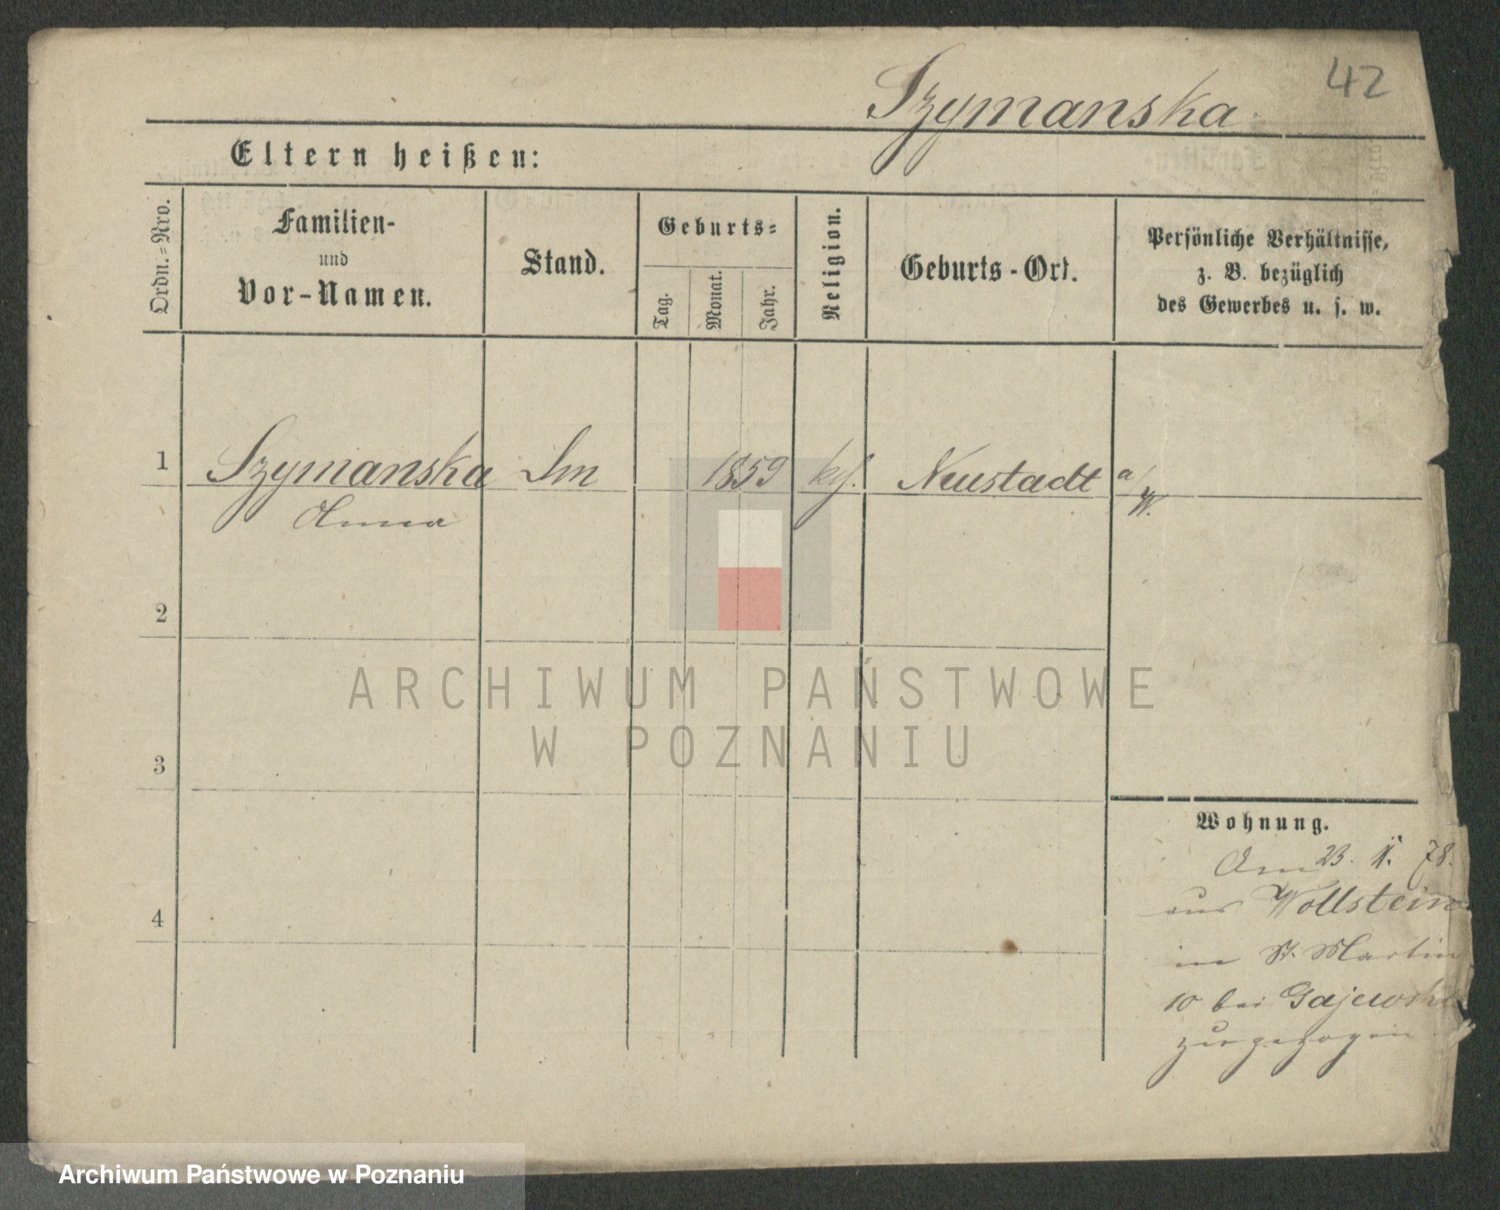 42
Szymanska
Eltern heißen:
Ordn.=Nro.
Familien-
und
Vor-Namen.
Stand.
Geburts=
Tag.
Monat.
Jahr.
Religion.
Geburts-Ort.
Persönliche Verhältnisse,
z. B. bezüglich
des Gewerbes u. s. w.
1 Szymanska 1859 Neustadt a/W.
Anna
2
3
4
Wohnung.
Am 23. 78.
aus Wollstein
in St. Martin
10 bei Gajewski
zugezogen
ARCHIWUM PAŃSTWOWE
W POZNANIU
Archiwum Państwowe w Poznaniu